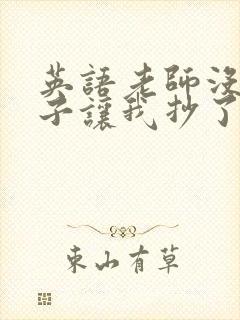 英語老師沒
子讓我抄了
東山有草